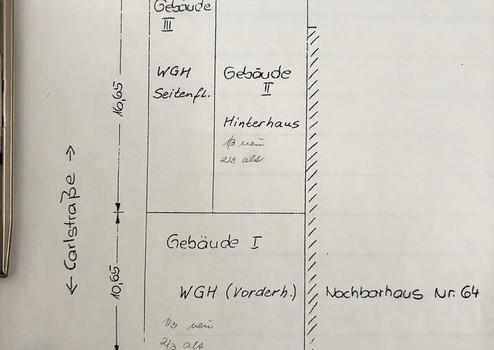 Gebäude
III
WGH
Seitenfl.
16,65
Gebäude
II
Hinterhaus
1/3 neu
2/3 alt
← Carlstraße →
Gebäude I
WGH (Vorderh.)
10,65
1/3 neu
2/3 alt
Nachbarhaus Nr. 64